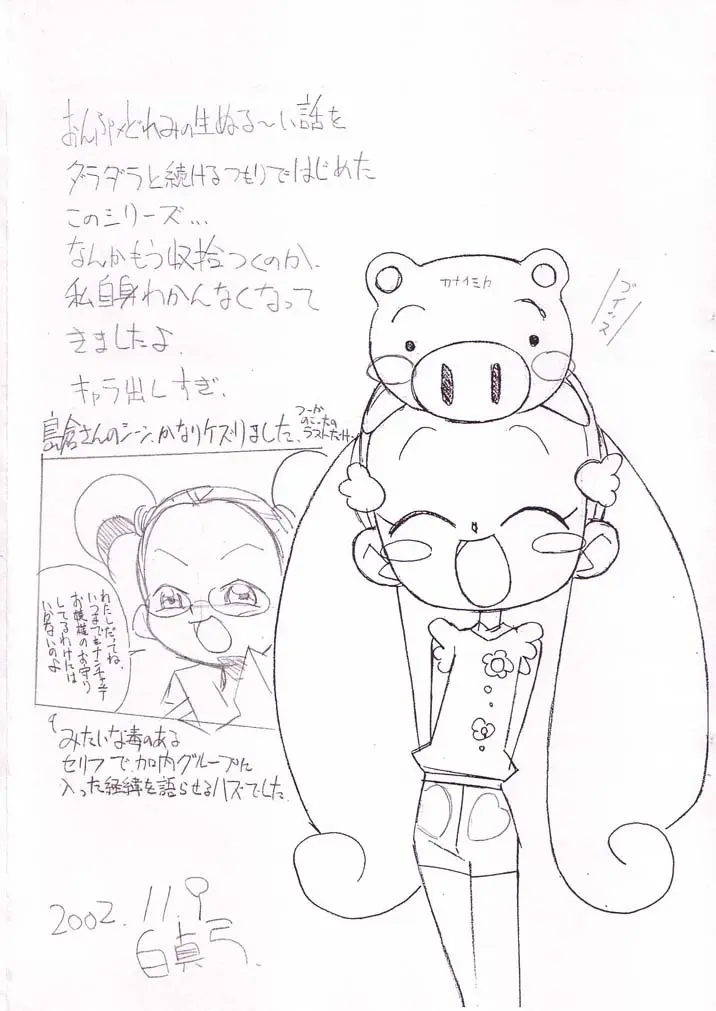 おんぷ×どれみの生ぬる〜い話を
ダラダラと続けるつもりではじめた
このシリーズ...
なんかもう収拾つくのか、
私自身わかんなくなって
きましたよ.
キャラ出しすぎ.
島倉さんのシーン、かなりケズりました.
つーか
のこったの
ラストだけ.
カナイミカ
ブイッス
わたしだってね、
いつまでもナンチャッテ
お嬢様のお守り
してるわけには
いかないのよ
みたいな毒のある
セリフで、加内グループに
入った経緯を語らせるハズでした.
2002.11.9
白真弓.